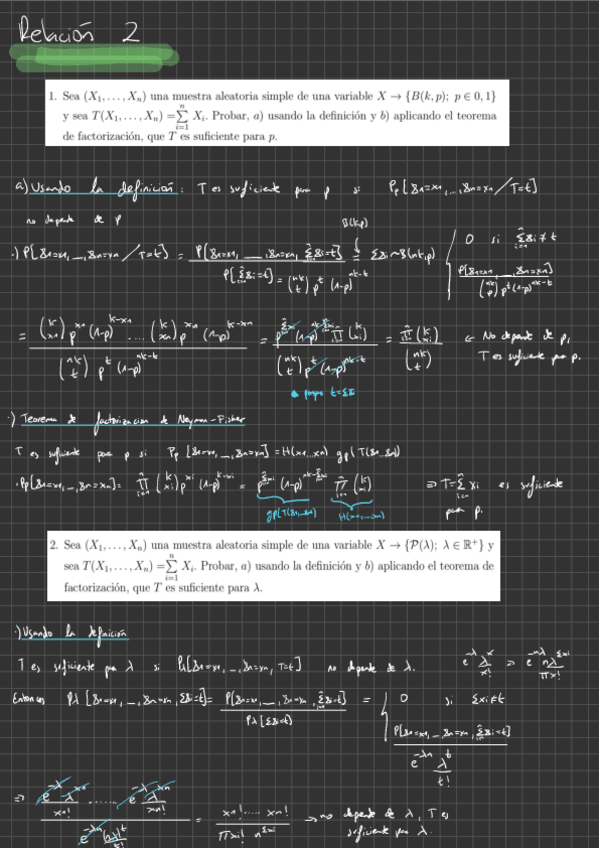 Relación 2
1. Sea (X₁, . . . , Xₙ) una muestra aleatoria simple de una variable X → {B(k, p); p ∈ 0, 1}
y sea T(X₁, . . . , Xₙ) = ∑ᵢ₌₁ⁿ Xᵢ. Probar, a) usando la definición y b) aplicando el teorema
de factorización, que T es suficiente para p.
a) Usando la definición: T es suficiente para p si Pp[X₁=x₁,...,Xₙ=xₙ/T=t]
no depende de p
B(k,p)
·) P[X₁=x₁,_,Xₙ=xₙ/T=t] = P[X₁=x₁,_,Xₙ=xₙ, ∑Xᵢ=t] / P[∑Xᵢ=t] = (nk t) p^t (1-p)^(nk-t)
0 si ∑Xᵢ≠t
= (k x₁) p^x₁ (1-p)^(k-x₁) .... (k xₙ) p^xₙ (1-p)^(k-xₙ) / (nk t) p^t (1-p)^(nk-t) = p^∑xᵢ (1-p)^(nk-∑xᵢ) ∏(k xᵢ) / (nk t) p^t (1-p)^(nk-t) = ∏(k xᵢ) / (nk t) ← No depende de p,
T es suficiente para p.
porque t=∑xᵢ
·) Teorema de factorización de Neyman-Fisher
T es suficiente para p si Pp[X₁=x₁,_,Xₙ=xₙ] = H(x₁...xₙ) gp(T(x₁...xₙ))
·Pp[X₁=x₁,_,Xₙ=xₙ] = ∏ᵢ₌₁ⁿ (k xᵢ) p^xᵢ (1-p)^(k-xᵢ) = p^∑xᵢ (1-p)^(nk-∑xᵢ) ∏ᵢ₌₁ⁿ (k xᵢ) ⇒ T=∑ᵢ₌₁ⁿ xᵢ es suficiente
para p.
gp(T(x₁,...xₙ)) H(x₁,...,xₙ)
2. Sea (X₁, . . . , Xₙ) una muestra aleatoria simple de una variable X → {𝒫(λ); λ ∈ ℝ⁺} y
sea T(X₁, . . . , Xₙ) = ∑ᵢ₌₁ⁿ Xᵢ. Probar, a) usando la definición y b) aplicando el teorema de
factorización, que T es suficiente para λ.
·) Usando la definición
T es suficiente para λ si Pλ[X₁=x₁,_,Xₙ=xₙ, T=t] no depende de λ.
Entonces Pλ[X₁=x₁,_,Xₙ=xₙ, ∑Xᵢ=t] = P[X₁=x₁,_,Xₙ=xₙ, ∑Xᵢ=t] / Pλ[∑Xᵢ=t] =
0 si ∑xᵢ≠t
P[X₁=x₁,_,Xₙ=xₙ, ∑Xᵢ=t] / e^(-λn) λ^t / t!
⇒ e^-λ λ^x₁ / x₁! ...... e^-λ λ^xₙ / xₙ!
→ no depende de λ, T es
suficiente para λ.